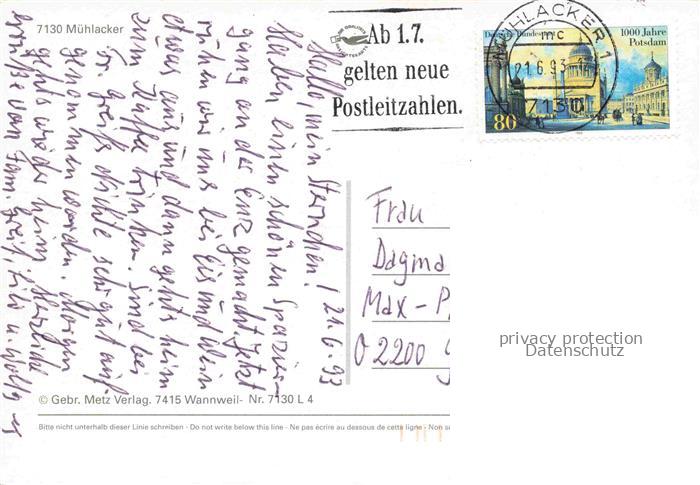 7130 Mühlacker
Ab 1.7.
gelten neue
Postleitzahlen.
Deutsche Bundespost
1000 Jahre
Potsdam
80
MÜHLACKER 1
mc
21.6.93
7130
Hallo, mein Sternchen! 21.6.93
Haben einen schönen Spazier-
gang an der Enz gemacht. Jetzt
ruhen wir uns bei Eis und Wein
etwas aus und dann gehts heim
zum Kaffee trinken. Sind bei
Fr. Greiß sehr gut auf-
genommen worden. Morgen
gehts wieder heim. Herzliche
Grüße von Fam. Greiß, u.
Frau
Dagma
Max - P
O 2200 G
privacy protection
Datenschutz
© Gebr. Metz Verlag. 7415 Wannweil- Nr. 7130 L 4
Bitte nicht unterhalb dieser Linie schreiben - Do not write below this line - Ne pas écrire au dessous de cette ligne - Non s